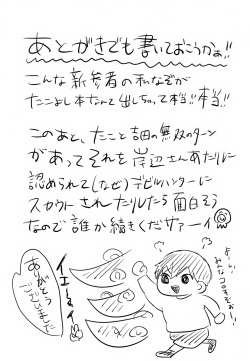 あとがきでも書いておこうかぁ!!
こんな新参者の私なぞが
たこよし本なんて出しちゃって本当!!本当!!
このあと、たこと吉田の無双のターン
があってそれを岸辺さんあたりに
認められて(なぜ)デビルハンターに
スカウトされたりしたら面白そう
なので誰か続きくださァーイ
イエーイ
ありがとう
ございました
よーし
みんなコロすぞぉー!